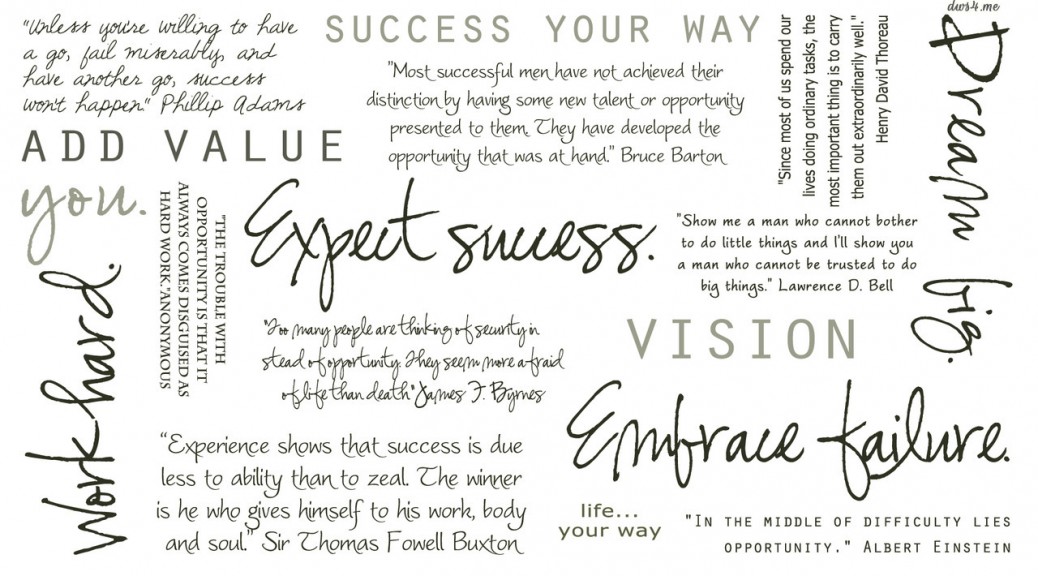 dws4.me
"Unless you're willing to have
a go, fail miserably, and
have another go, success
won't happen." Phillip Adams
SUCCESS YOUR WAY
"Most successful men have not achieved their
distinction by having some new talent or opportunity
presented to them. They have developed the
opportunity that was at hand." Bruce Barton
"Since most of us spend our
lives doing ordinary tasks, the
most important thing is to carry
them out extraordinarily well."
Henry David Thoreau
Dream big.
ADD VALUE
you.
"THE TROUBLE WITH
OPPORTUNITY IS THAT IT
ALWAYS COMES DISGUISED AS
HARD WORK."ANONYMOUS
Expect success.
"Show me a man who cannot bother
to do little things and I'll show you
a man who cannot be trusted to do
big things." Lawrence D. Bell
Work hard.
"Too many people are thinking of security in
stead of opportunity. They seem more afraid
of life than death" James F. Byrnes
VISION
Embrace failure.
"Experience shows that success is due
less to ability than to zeal. The winner
is he who gives himself to his work, body
and soul." Sir Thomas Fowell Buxton
life...
your way
"IN THE MIDDLE OF DIFFICULTY LIES
OPPORTUNITY." ALBERT EINSTEIN